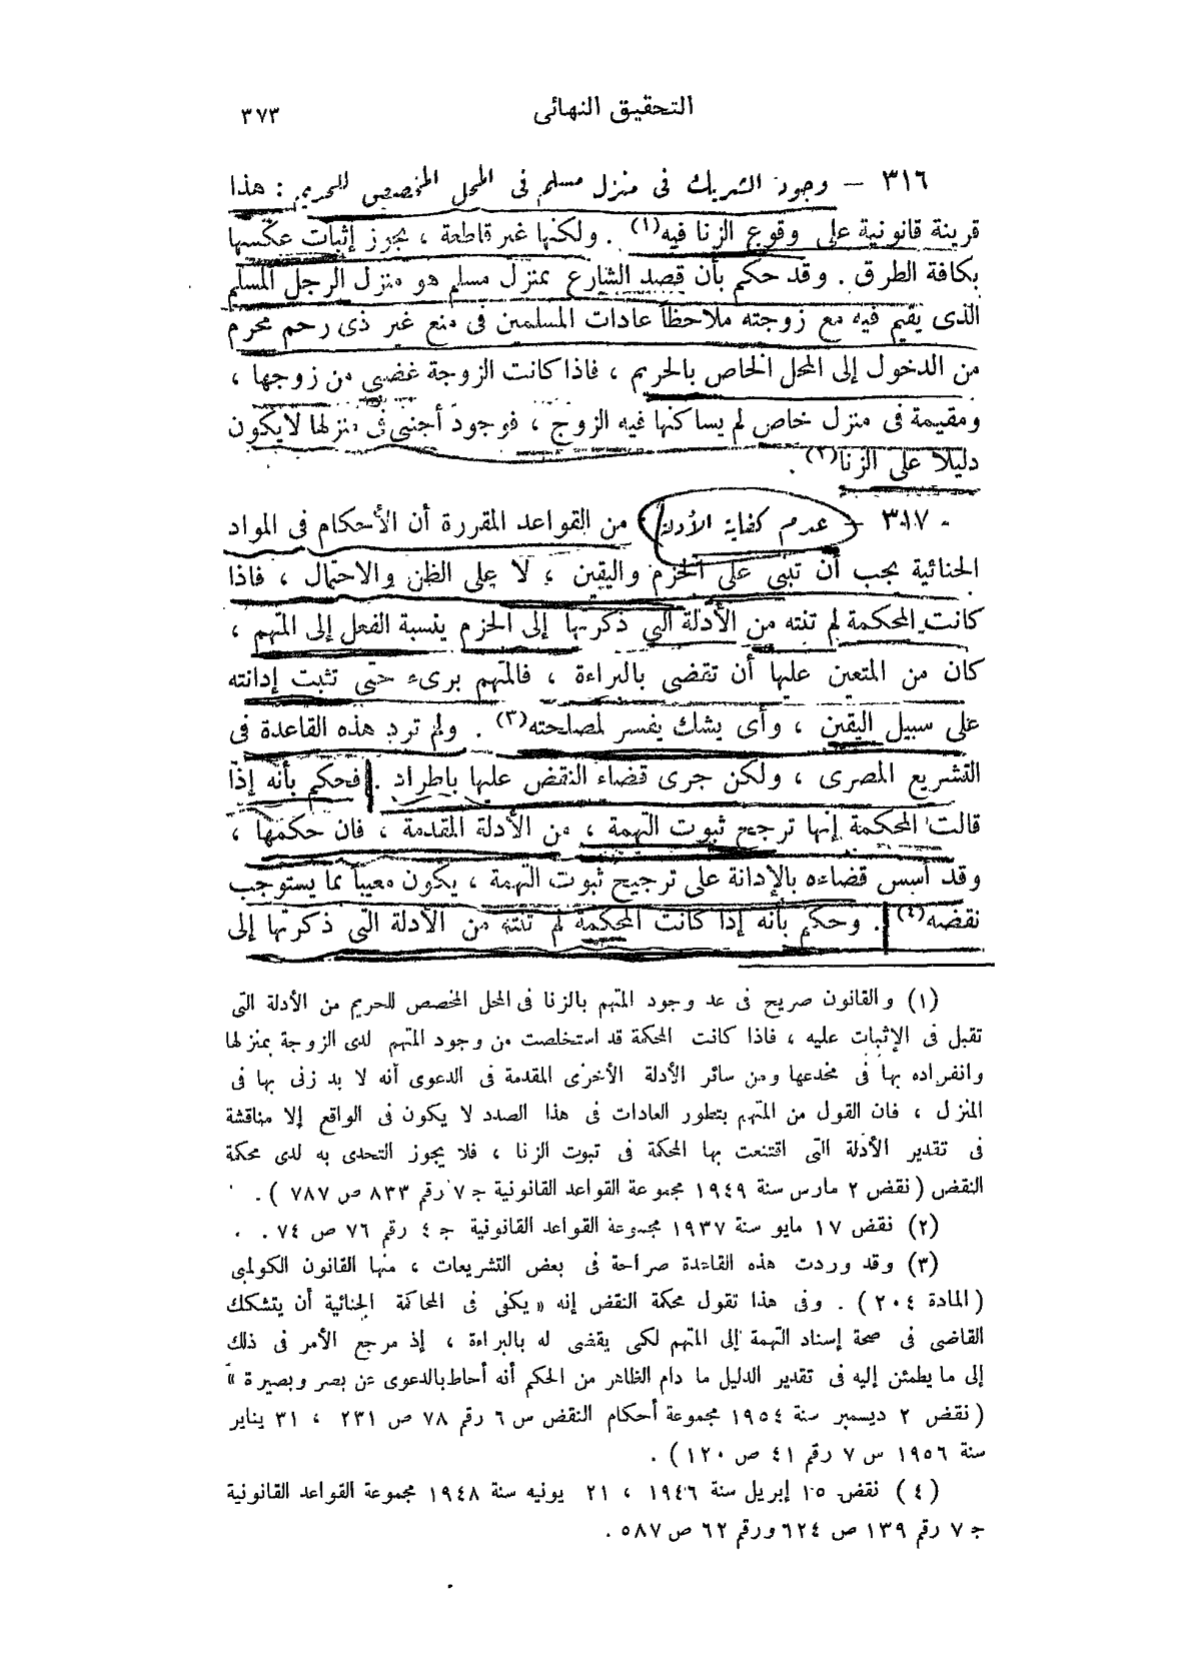 التحقيق النهائى
٣٧٣
٣١٦ — وجود الشريك فى منزل مسلم فى المحل المخصص للحريم : هذا
قرينة قانونية على وقوع الزنا فيه(١) . ولكنها غير قاطعة ، يجوز إثبات عكسها
بكافة الطرق . وقد حكم بأن قصد الشارع بمنزل مسلم هو منزل الرجل المسلم
الذى يقيم فيه مع زوجته ملاحظاً عادات المسلمين فى منع غير ذى رحم محرم
من الدخول إلى المحل الخاص بالحريم ، فاذا كانت الزوجة غضبى من زوجها ،
ومقيمة فى منزل خاص لم يساكنها فيه الزوج ، فوجود أجنبى فى منزلها لا يكون
دليلا على الزنا(٢) .
٣١٧ — عدم كفاية الأدلة : من القواعد المقررة أن الأحكام فى المواد
الجنائية يجب أن تبنى على الجزم واليقين ، لا على الظن والاحتمال ، فاذا
كانت المحكمة لم تنته من الأدلة التى ذكرتها إلى الجزم بنسبة الفعل إلى المتهم ،
كان من المتعين عليها أن تقضى بالبراءة ، فالمتهم برىء حتى تثبت إدانته
على سبيل اليقين ، وأى شك يفسر لمصلحته(٣) . ولم ترد هذه القاعدة فى
التشريع المصرى ، ولكن جرى قضاء النقض عليها باطراد . فحكم بأنه إذا
قالت المحكمة إنها ترجح ثبوت التهمة ، من الأدلة المقدمة ، فان حكمها ،
وقد أسس قضاءه بالإدانة على ترجيح ثبوت التهمة ، يكون معيباً بما يستوجب
نقضه(٤) . وحكم بأنه إذا كانت المحكمة لم تنته من الأدلة التى ذكرتها إلى
(١) والقانون صريح فى عد وجود المتهم بالزنا فى المحل المخصص للحريم من الأدلة التى
تقبل فى الإثبات عليه ، فاذا كانت المحكمة قد استخلصت من وجود المتهم لدى الزوجة بمنزلها
وانفراده بها فى مخدعها ومن سائر الأدلة الأخرى المقدمة فى الدعوى أنه لا بد زنى بها فى
المنزل ، فان القول من المتهم بتطور العادات فى هذا الصدد لا يكون فى الواقع إلا مناقشة
فى تقدير الأدلة التى اقتنعت بها المحكمة فى ثبوت الزنا ، فلا يجوز التحدى به لدى محكمة
النقض ( نقض ٢ مارس سنة ١٩٤٩ مجموعة القواعد القانونية ج ٧ رقم ٨٣٣ ص ٧٨٧ ) .
(٢) نقض ١٧ مايو سنة ١٩٣٧ مجموعة القواعد القانونية ج ٤ رقم ٧٦ ص ٧٤ .
(٣) وقد وردت هذه القاعدة صراحة فى بعض التشريعات ، منها القانون الكولمبى
( المادة ٢٠٤ ) . وفى هذا تقول محكمة النقض إنه « يكفى فى المحاكمة الجنائية أن يتشكك
القاضى فى صحة إسناد التهمة إلى المتهم لكى يقضى له بالبراءة ، إذ مرجع الأمر فى ذلك
إلى ما يطمئن إليه فى تقدير الدليل ما دام الظاهر من الحكم أنه أحاط بالدعوى عن بصر وبصيرة »
( نقض ٢ ديسمبر سنة ١٩٥٤ مجموعة أحكام النقض س ٦ رقم ٧٨ ص ٢٣١ ، ٣١ يناير
سنة ١٩٥٦ س ٧ رقم ٤١ ص ١٢٠ ) .
( ٤ ) نقض ١٥ إبريل سنة ١٩٤٦ ، ٢١ يونيه سنة ١٩٤٨ مجموعة القواعد القانونية
ج ٧ رقم ١٣٩ ص ٦٢٤ ورقم ٦٢ ص ٥٨٧ .